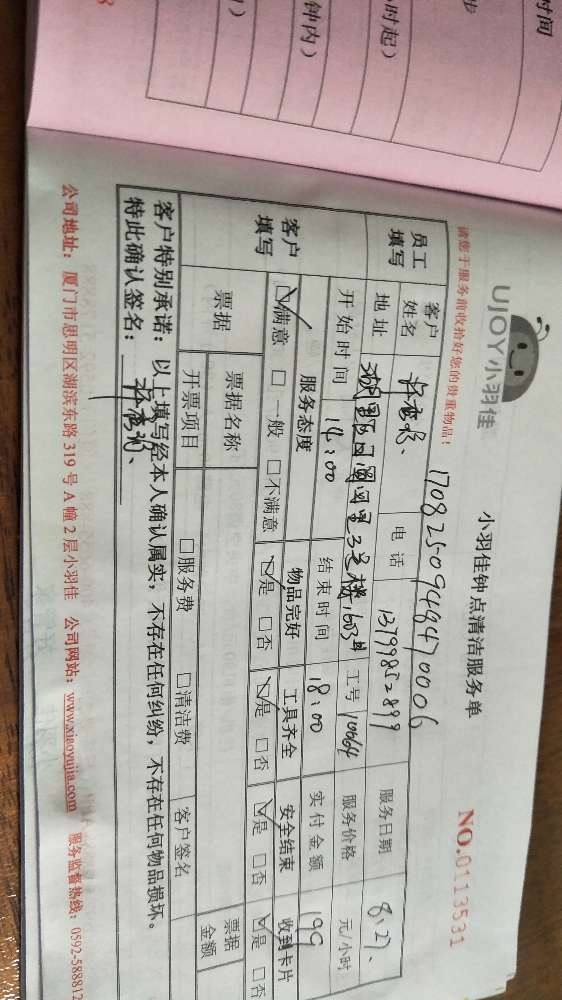 时间
步
小时起）
钟内）
）
UJOY小羽佳
小羽佳钟点清洁服务单
NO.0113531
请您于服务前收拾好您的贵重物品！
1708250948470006
员工填写
客户姓名
电话 13799852899
服务日期 8.27、
地址
3号楼1603#
工号 10064
服务价格 元/小时
开始时间 14:00
结束时间 18:00
实付金额 199
客户填写
服务态度 物品完好 工具齐全 安全结束 收到卡片
☑满意 □一般 □不满意 ☑是 □否 ☑是 □否 ☑是 □否 ☑是 □否
票据
票据名称
票据金额
开票项目 □服务费 □清洁费 客户签名
客户特别承诺：以上填写经本人确认属实，不存在任何纠纷，不存在任何物品损坏。
特此确认签名：
公司地址：厦门市思明区湖滨东路319号A幢2层小羽佳 公司网站：www.xiaoyujia.com 服务监督热线：0592-588812